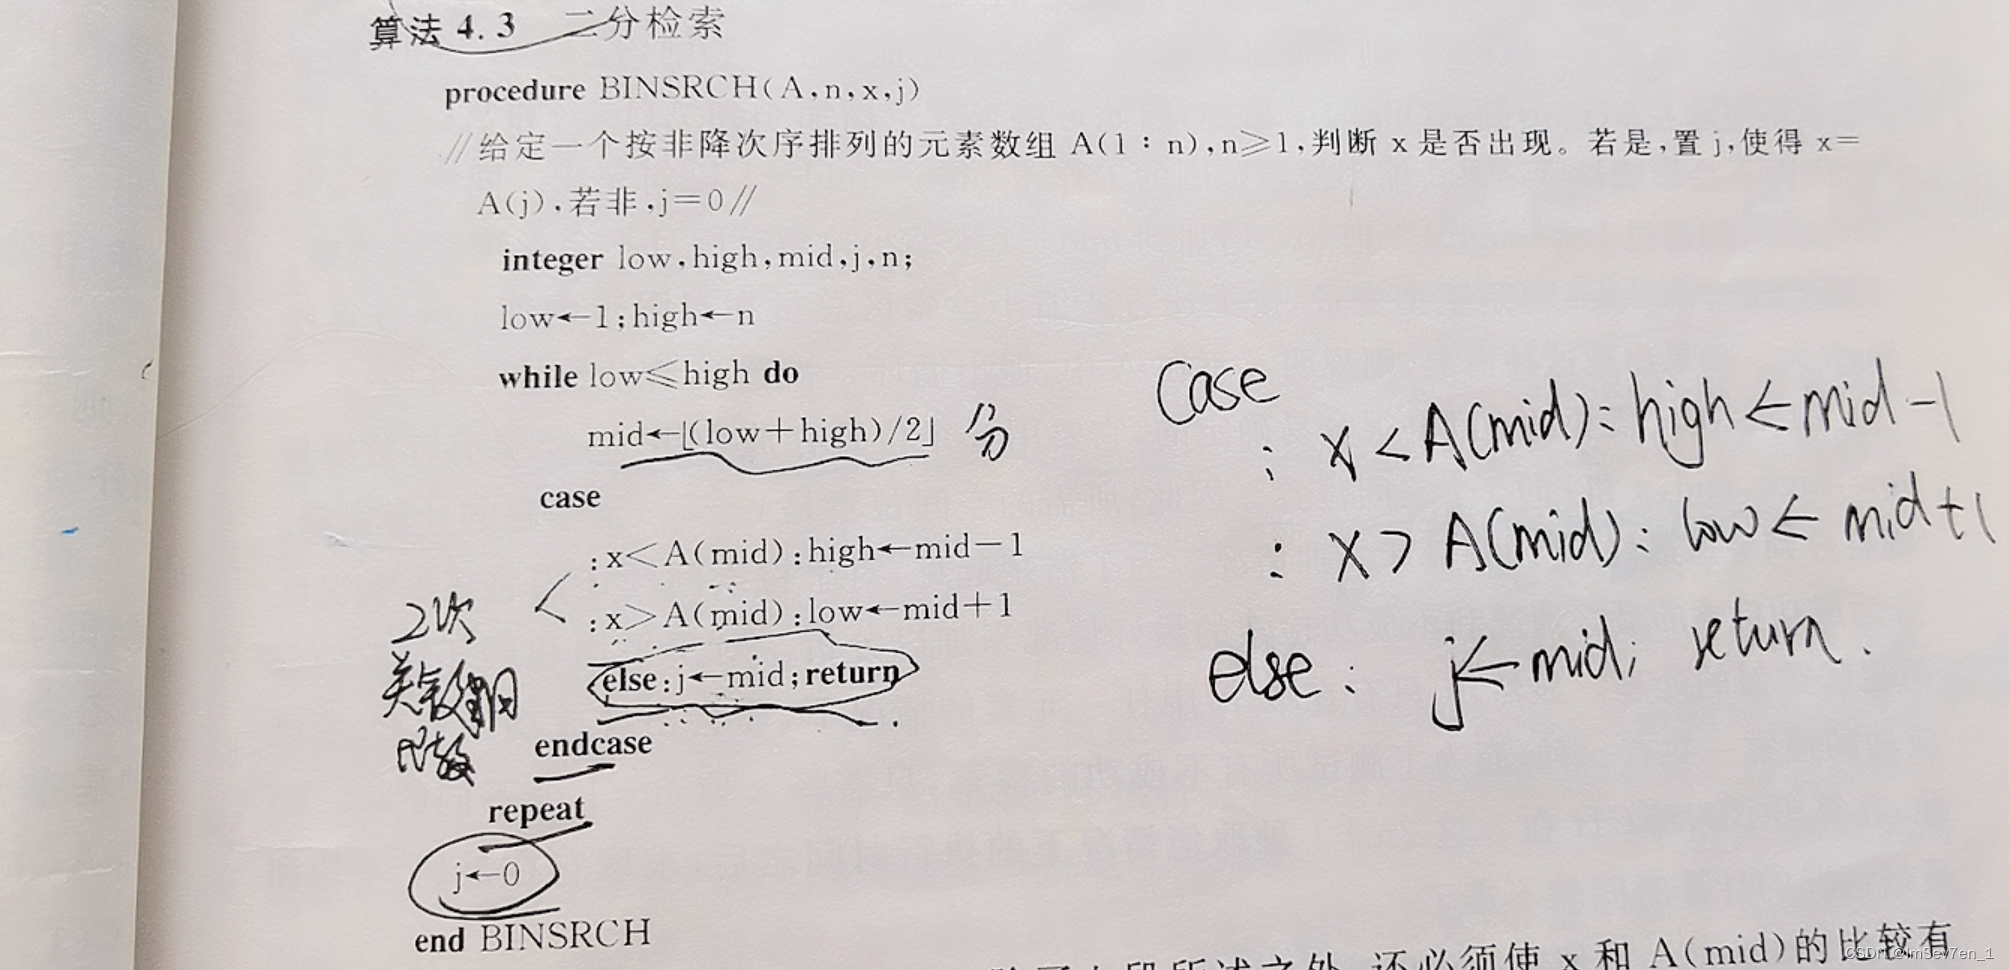 算法 4.3 二分检索
procedure BINSRCH(A,n,x,j)
//给定一个按非降次序排列的元素数组 A(1:n),n≥1,判断 x 是否出现。若是,置 j,使得 x=
A(j),若非,j=0//
integer low,high,mid,j,n;
low←1;high←n
while low≤high do
mid←⌊(low+high)/2⌋ 分
case
:x<A(mid):high←mid-1
:x>A(mid):low←mid+1
else:j←mid;return
endcase
repeat
j←0
end BINSRCH
2次
关键词
比较
Case
: x < A(mid): high ← mid-1
: x > A(mid): low ← mid+1
else: j← mid; return.
还必须使 x 和 A(mid)的比较有
CSDN @ImSev7en_1